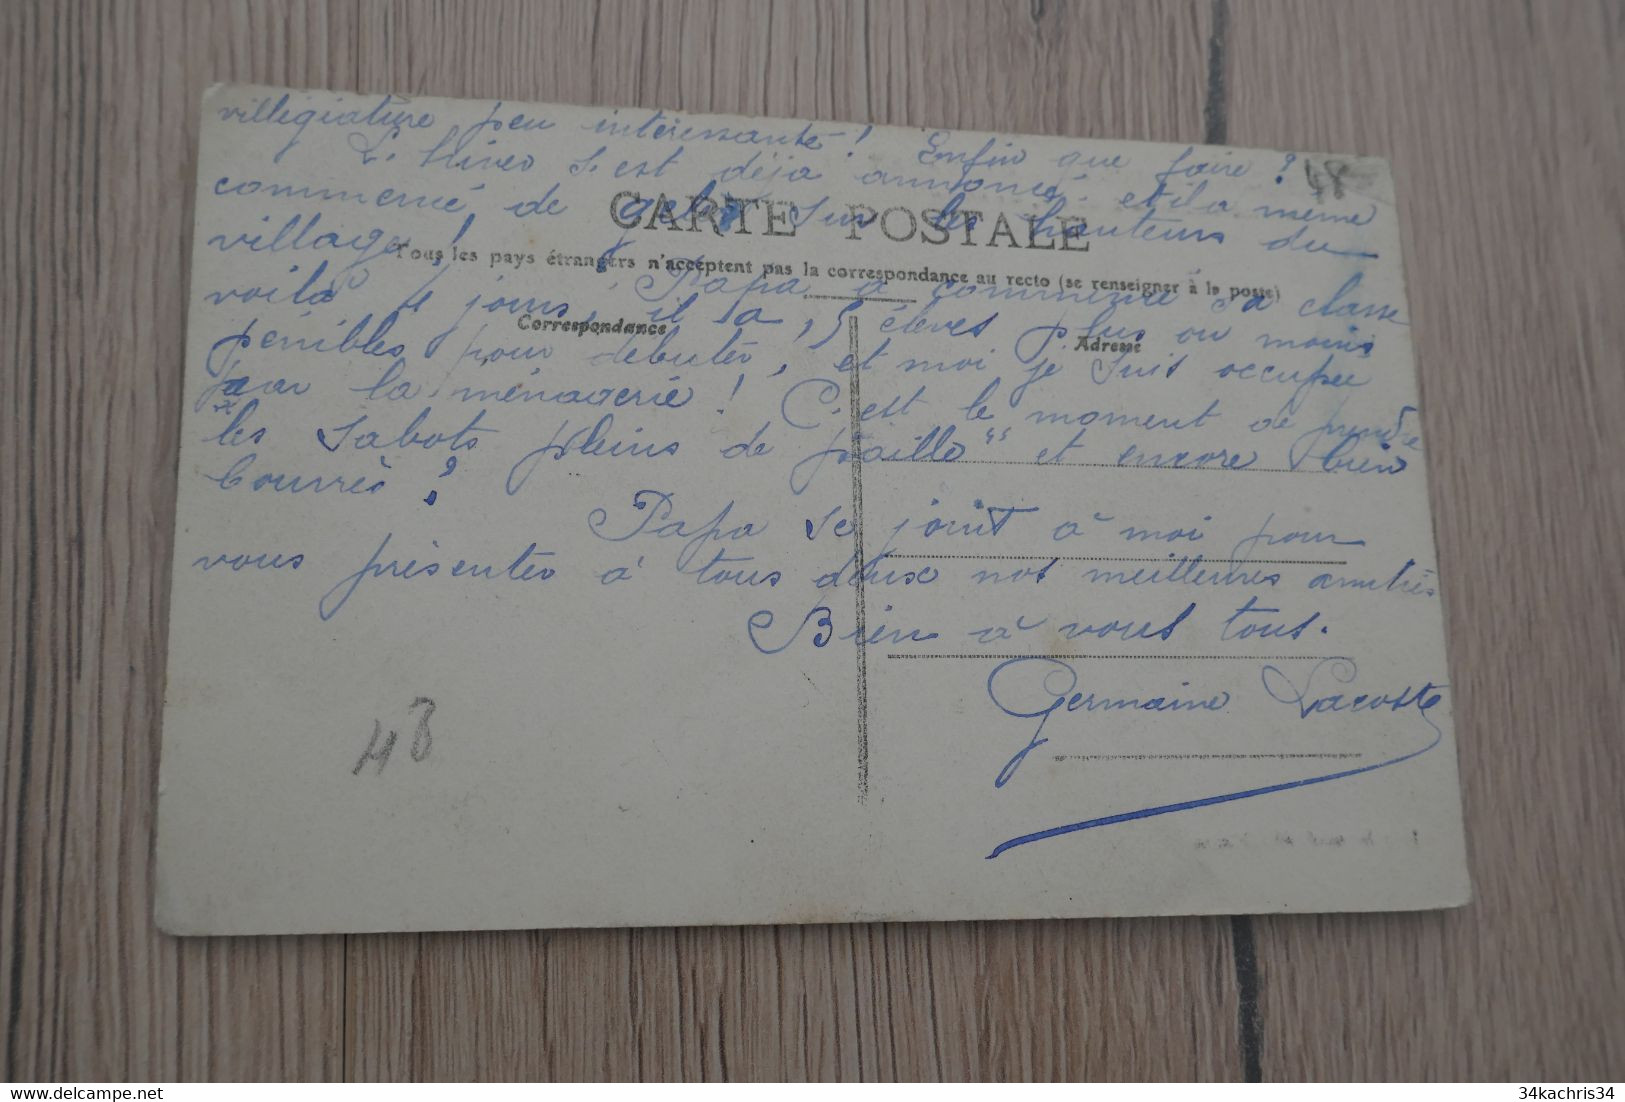 villégiature peu intéressante! Enfin que faire?
L'Hiver s'est déjà annoncé, et il a même
commencé de geler sur les hauteurs du
village!
CARTE POSTALE
Tous les pays étrangers n'acceptent pas la correspondance au recto (se renseigner à la poste)
Papa a commencé sa classe
voilà 4 jours, il a 15 élèves plus ou moins
Correspondance
Adresse
pénibles pour débuter, et moi je suis occupée
par la ménagerie! C'est le moment de prendre
les sabots pleins de paille" et encore bien
bourrés?
Papa se joint à moi pour
vous présenter à tous deux nos meilleures amitiés
Bien à vous tous.
Germaine Lacoste
48
48
delcampe.net
34kachris34